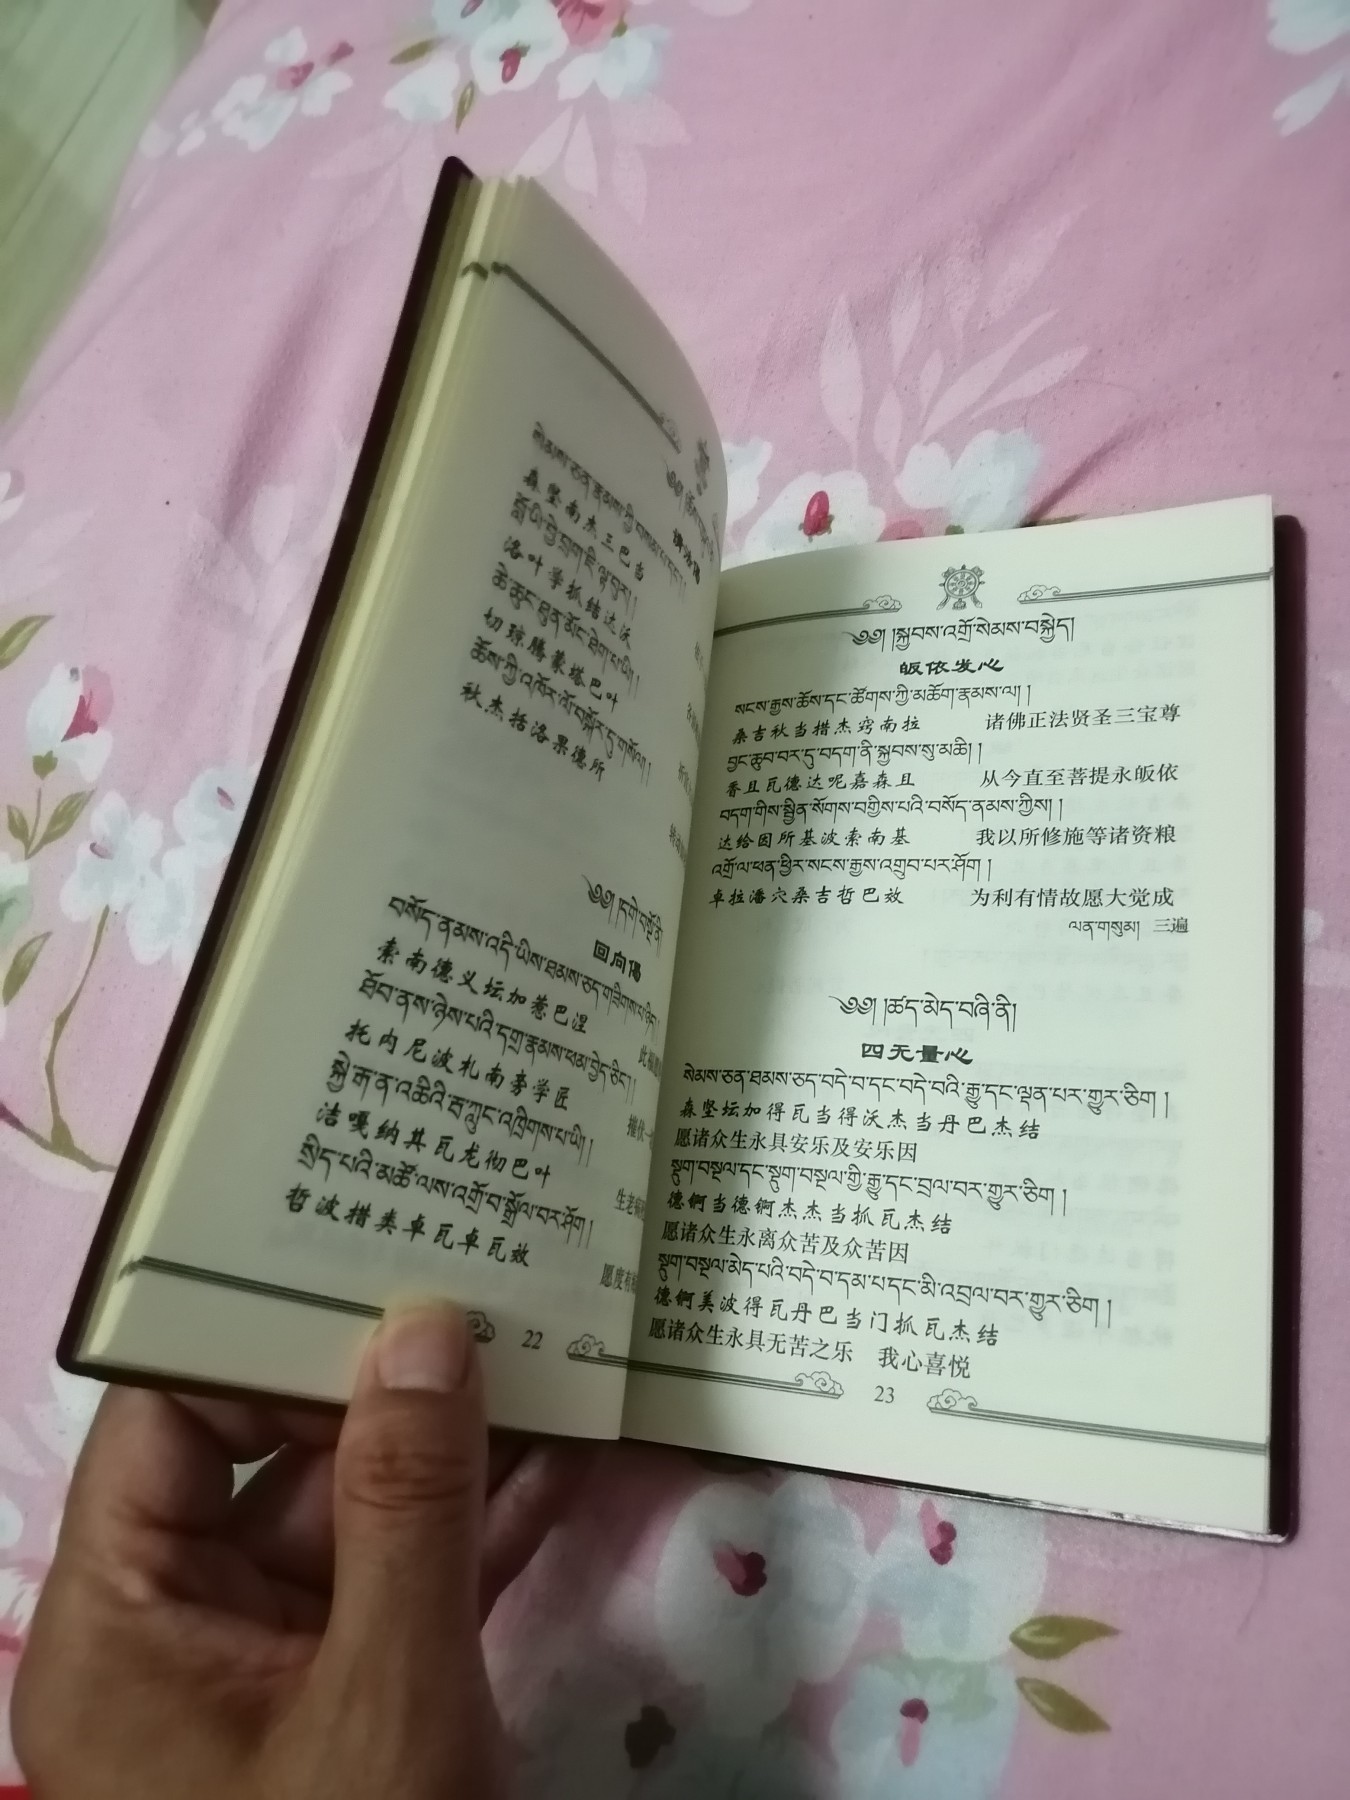 ༄༅། །ཆོས་
请法偈
སེམས་ཅན་རྣམས་ཀྱི་བསམ་པ་དང༌། །
森坚南杰三巴当
བློ་ཡི་བྱེ་བྲག་ཇི་ལྟ་བུར། །
洛叶学抓结达沃
ཆེ་ཆུང་ཐུན་མོང་ཐེག་པ་ཡི། །
切琼腾蒙塔巴叶
ཆོས་ཀྱི་འཁོར་ལོ་བསྐོར་དུ་གསོལ། །
秋杰括洛果德所
༄༅། །དགེ་བསྔོ་ནི།
回向偈
བསོད་ནམས་འདི་ཡིས་ཐམས་ཅད་གཟིགས་པ་ཉིད། །
索南德义坛加惹巴涅
此福
ཐོབ་ནས་ཉེས་པའི་དགྲ་རྣམས་ཕམ་བྱེད་ཅིང༌། །
托内尼波札南旁学匠
摧伏一
སྐྱེ་རྒ་ན་འཆིའི་རྦ་ཀླུང་འཁྲིགས་པ་ཡི། །
洁嘎纳其瓦龙彻巴叶
生老病
སྲིད་པའི་མཚོ་ལས་འགྲོ་བ་སྒྲོལ་བར་ཤོག །
哲波措类卓瓦卓瓦效
愿度有
22
༄༅། །སྐྱབས་འགྲོ་སེམས་བསྐྱེད།
皈依发心
སངས་རྒྱས་ཆོས་དང་ཚོགས་ཀྱི་མཆོག་རྣམས་ལ། །
桑吉秋当措杰窍南拉 诸佛正法贤圣三宝尊
བྱང་ཆུབ་བར་དུ་བདག་ནི་སྐྱབས་སུ་མཆི། །
香且瓦德达呢嘉森且 从今直至菩提永皈依
བདག་གིས་སྦྱིན་སོགས་བགྱིས་པའི་བསོད་ནམས་ཀྱིས། །
达给因所基波索南基 我以所修施等诸资粮
འགྲོ་ལ་ཕན་ཕྱིར་སངས་རྒྱས་འགྲུབ་པར་ཤོག །
卓拉潘穴桑吉哲巴效 为利有情故愿大觉成
ལན་གསུམ། 三遍
༄༅། །ཚད་མེད་བཞི་ནི།
四无量心
སེམས་ཅན་ཐམས་ཅད་བདེ་བ་དང་བདེ་བའི་རྒྱུ་དང་ལྡན་པར་གྱུར་ཅིག །
森坚坛加得瓦当得沃杰当丹巴杰结
愿诸众生永具安乐及安乐因
སྡུག་བསྔལ་དང་སྡུག་བསྔལ་གྱི་རྒྱུ་དང་བྲལ་བར་གྱུར་ཅིག །
德锕当德锕杰杰当抓瓦杰结
愿诸众生永离众苦及众苦因
སྡུག་བསྔལ་མེད་པའི་བདེ་བ་དམ་པ་དང་མི་འབྲལ་བར་གྱུར་ཅིག །
德锕美波得瓦丹巴当门抓瓦杰结
愿诸众生永具无苦之乐 我心喜悦
23